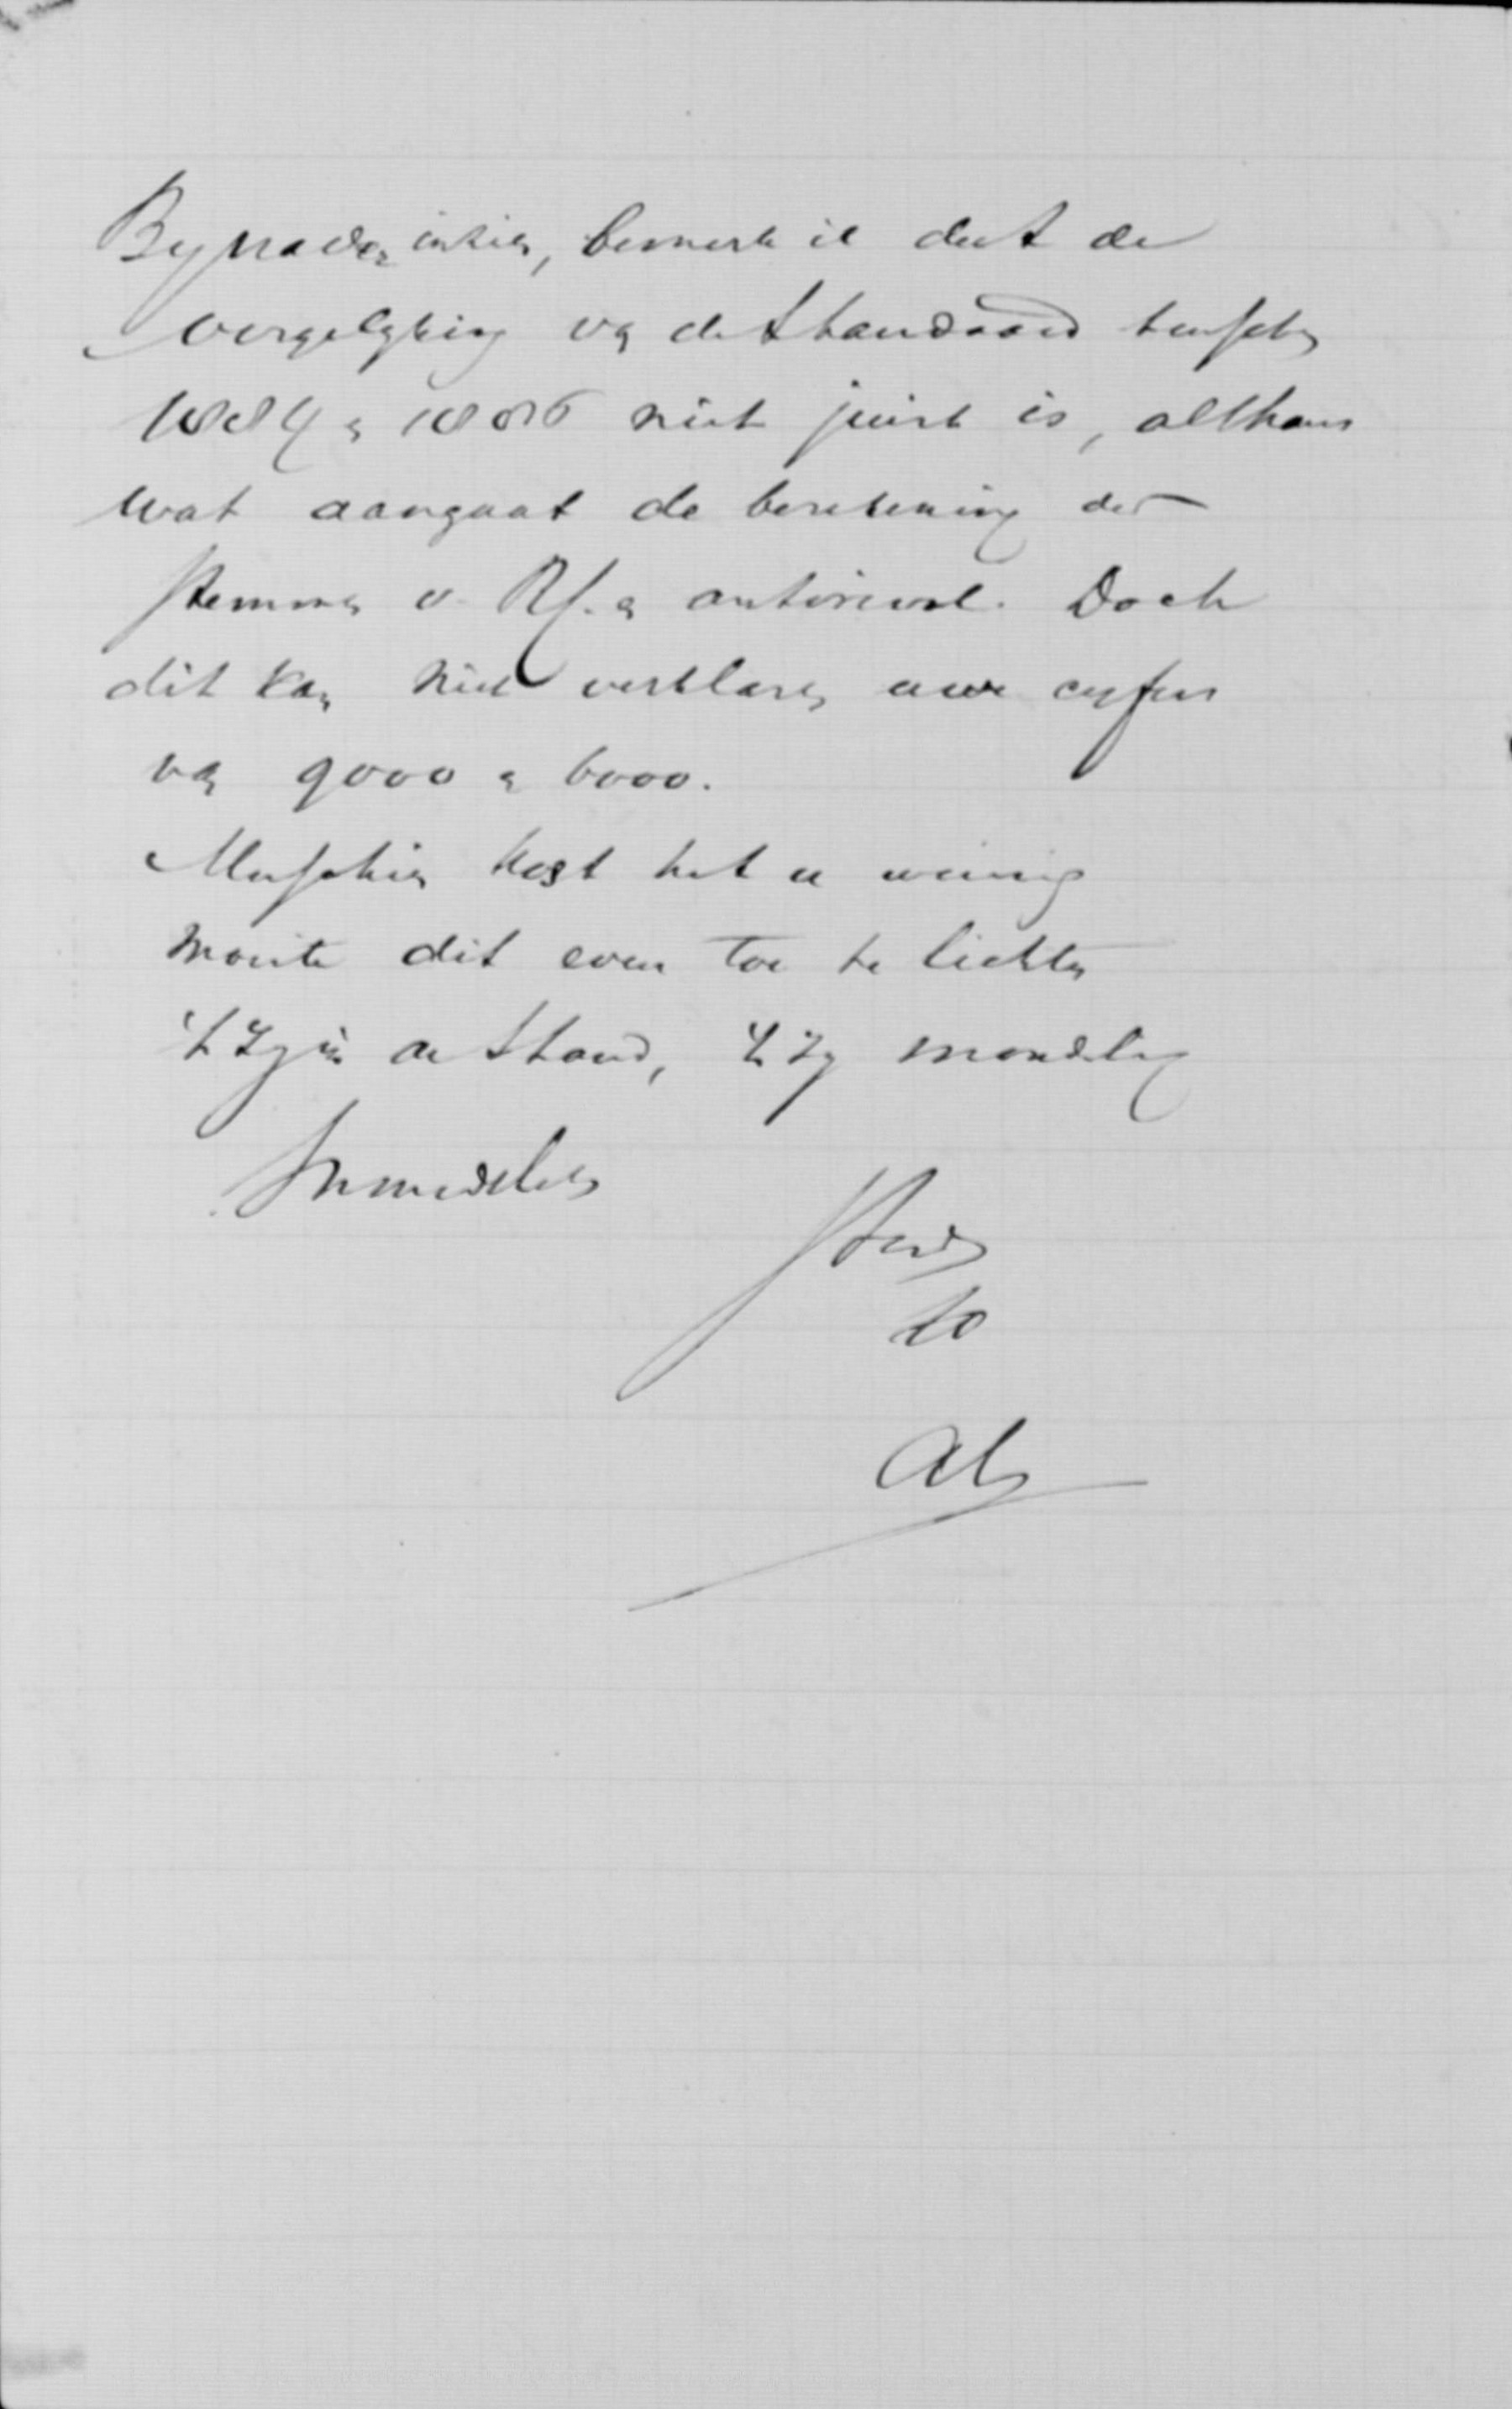 By nader inzien, bemerk ik dat de
vergelyking van de Standaard tusschen
1884 en 1886 niet juist is, althans
wat aangaat de berekening der
stemmen v. Rk. en antirevol. Doch
dit kan niet verklaren uwe cyfers
van 9000 en 6000.
Misschien kost het u weinig
moeite dit even toe te lichten
't zy in de Stand, 't zy mondeling
Inmiddels
steeds